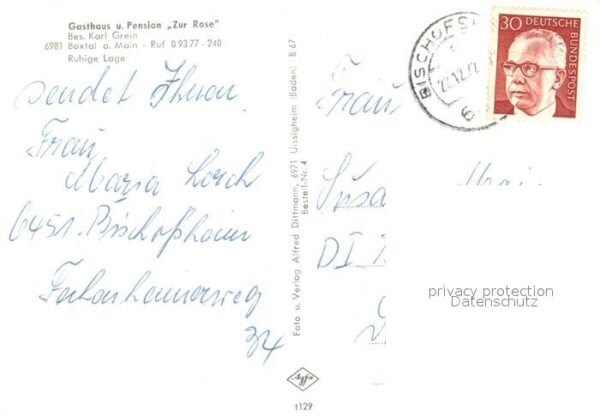 Gasthaus u. Pension „Zur Rose"
Bes. Karl Grein
6981 Boxtal a. Main - Ruf 0 93 77 - 240
Ruhige Lage
sendet Ihnen
Frau
Maria Lorch
6451 Bischofsheim
34
Foto u. Verlag Alfred Dittmann, 6971 Uissigheim (Baden) B 67
Bestell-Nr. 4
Agfa
t129
BISCHOFS
22.12.7
30 DEUTSCHE
BUNDESPOST
Frau
Susa
D I
privacy protection
Datenschutz